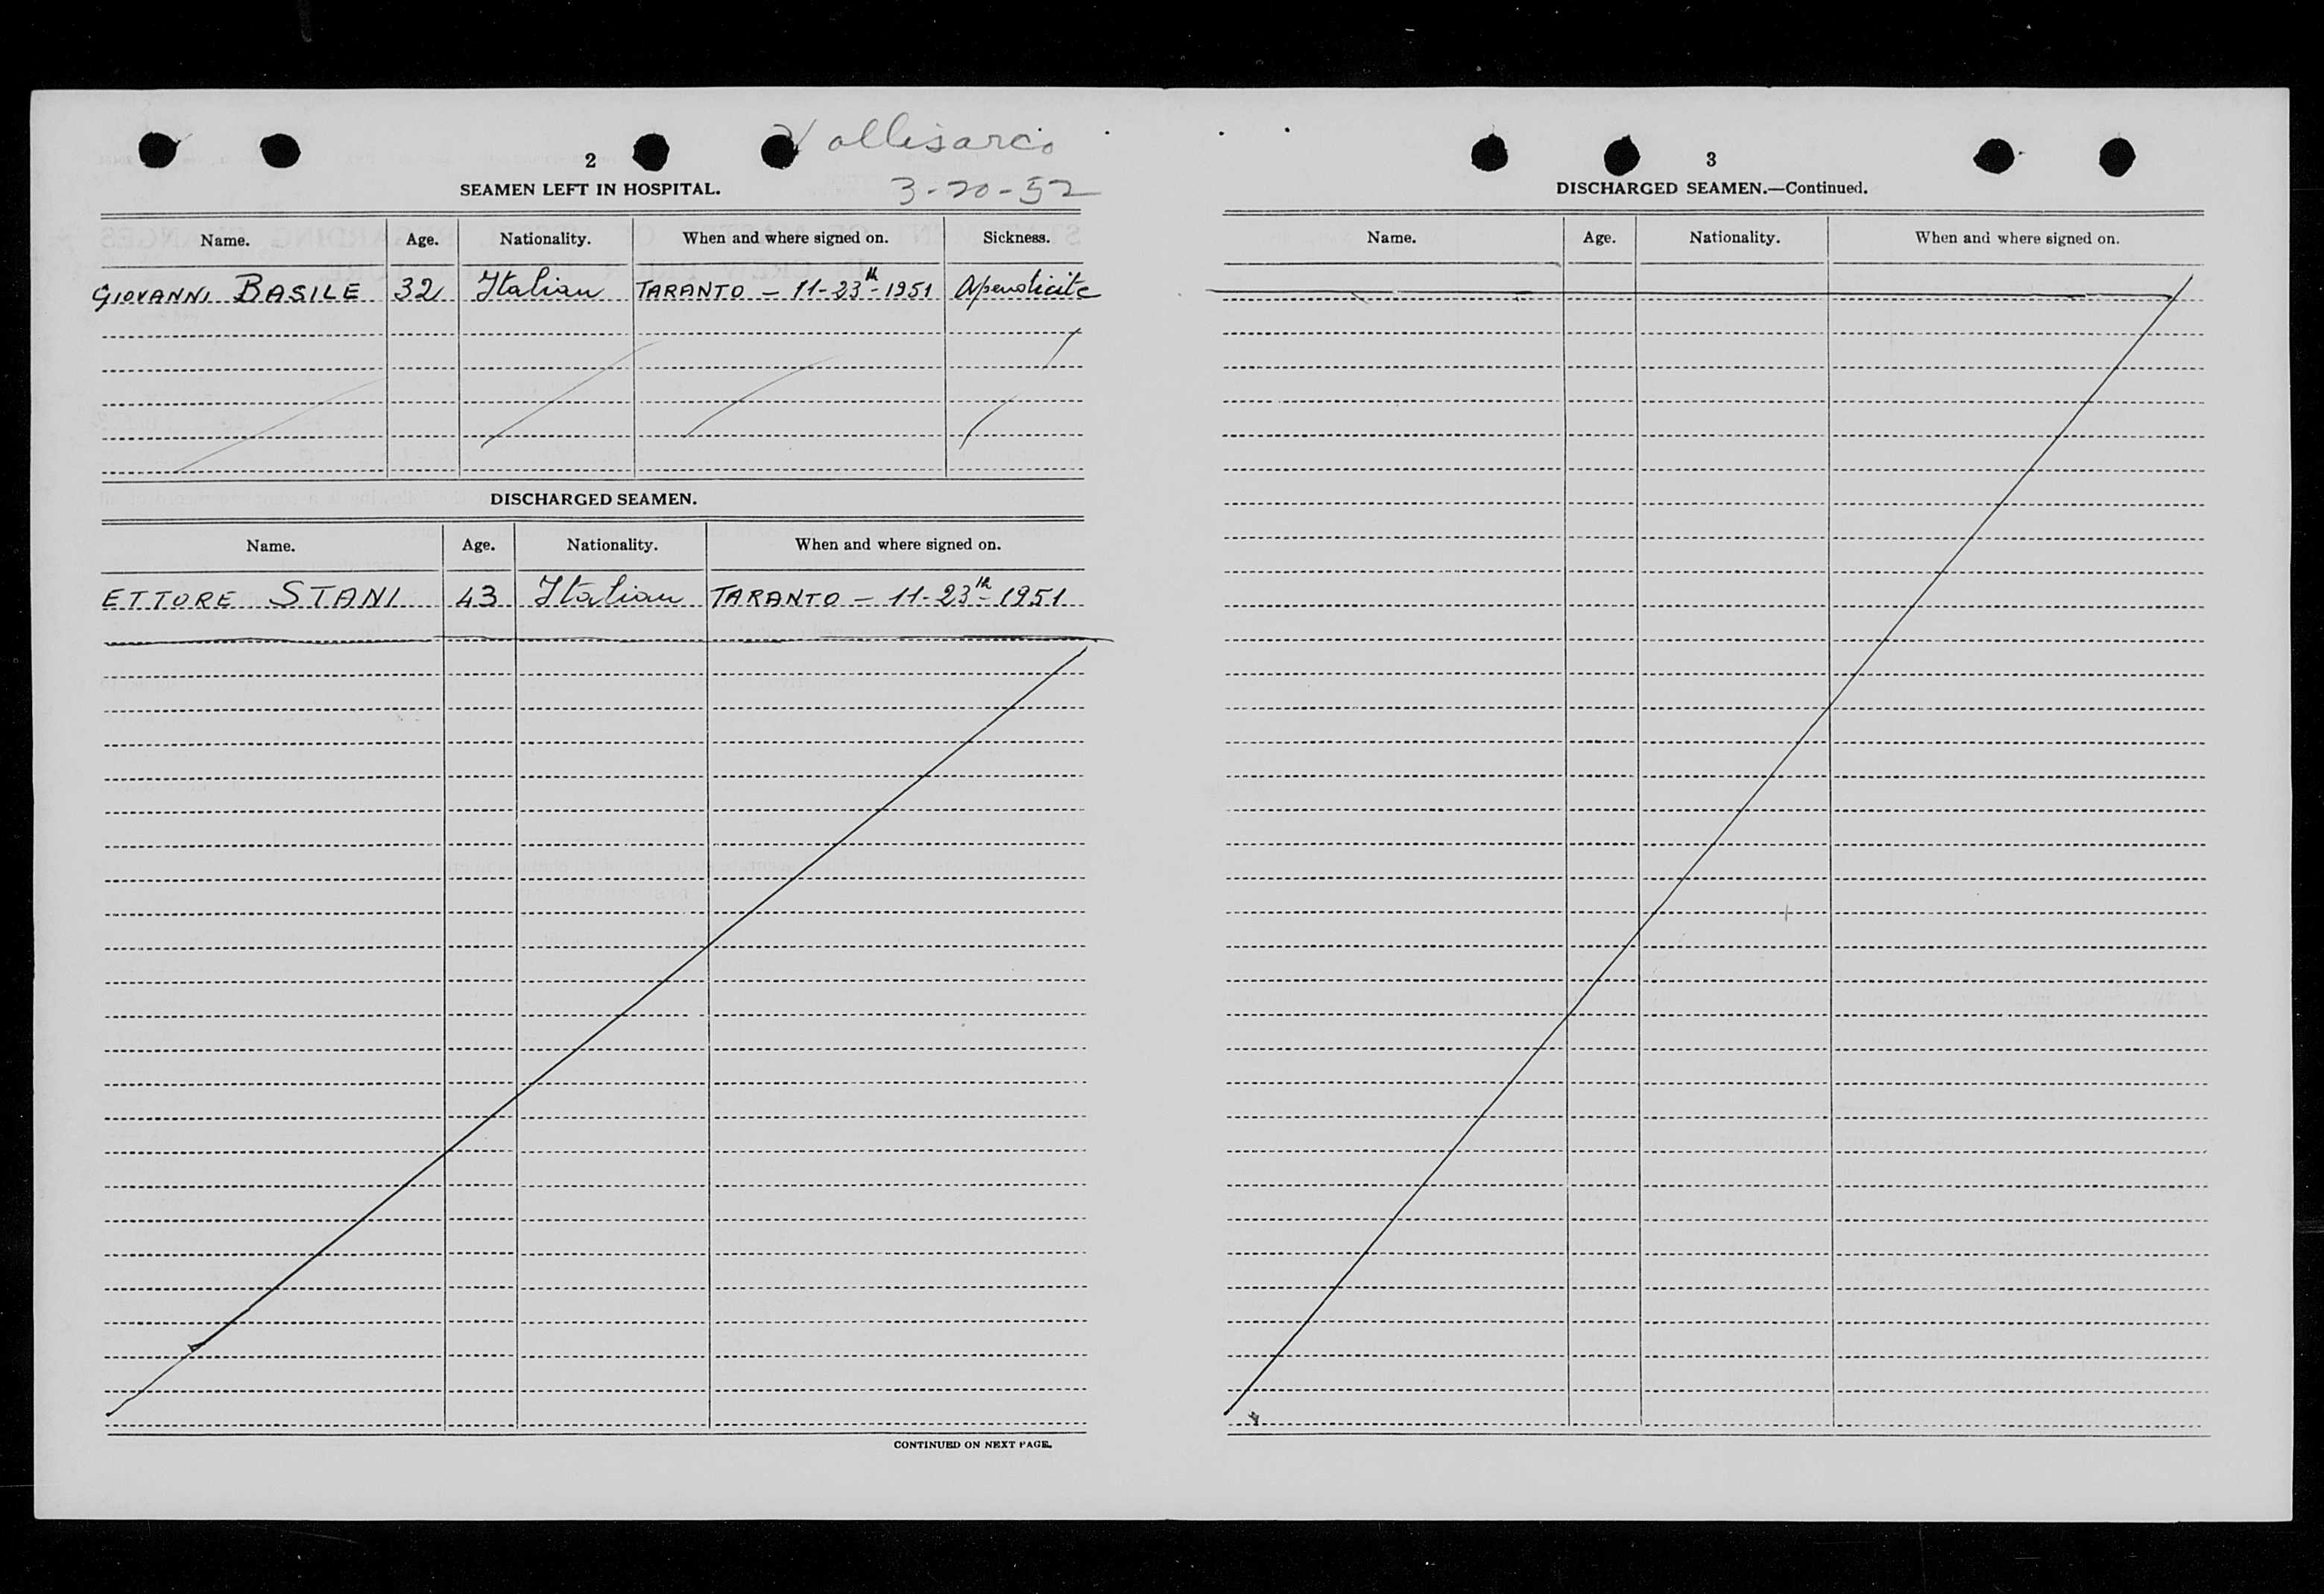 Vallisarco
3-20-52
2
SEAMEN LEFT IN HOSPITAL.
Name. Age. Nationality. When and where signed on. Sickness.
GIOVANNI BASILE 32 Italian TARANTO - 11-23th-1951 Apendicite
DISCHARGED SEAMEN.
Name. Age. Nationality. When and where signed on.
ETTORE STANI 43 Italian TARANTO - 11-23th-1951
CONTINUED ON NEXT PAGE.
3
DISCHARGED SEAMEN.—Continued.
Name. Age. Nationality. When and where signed on.